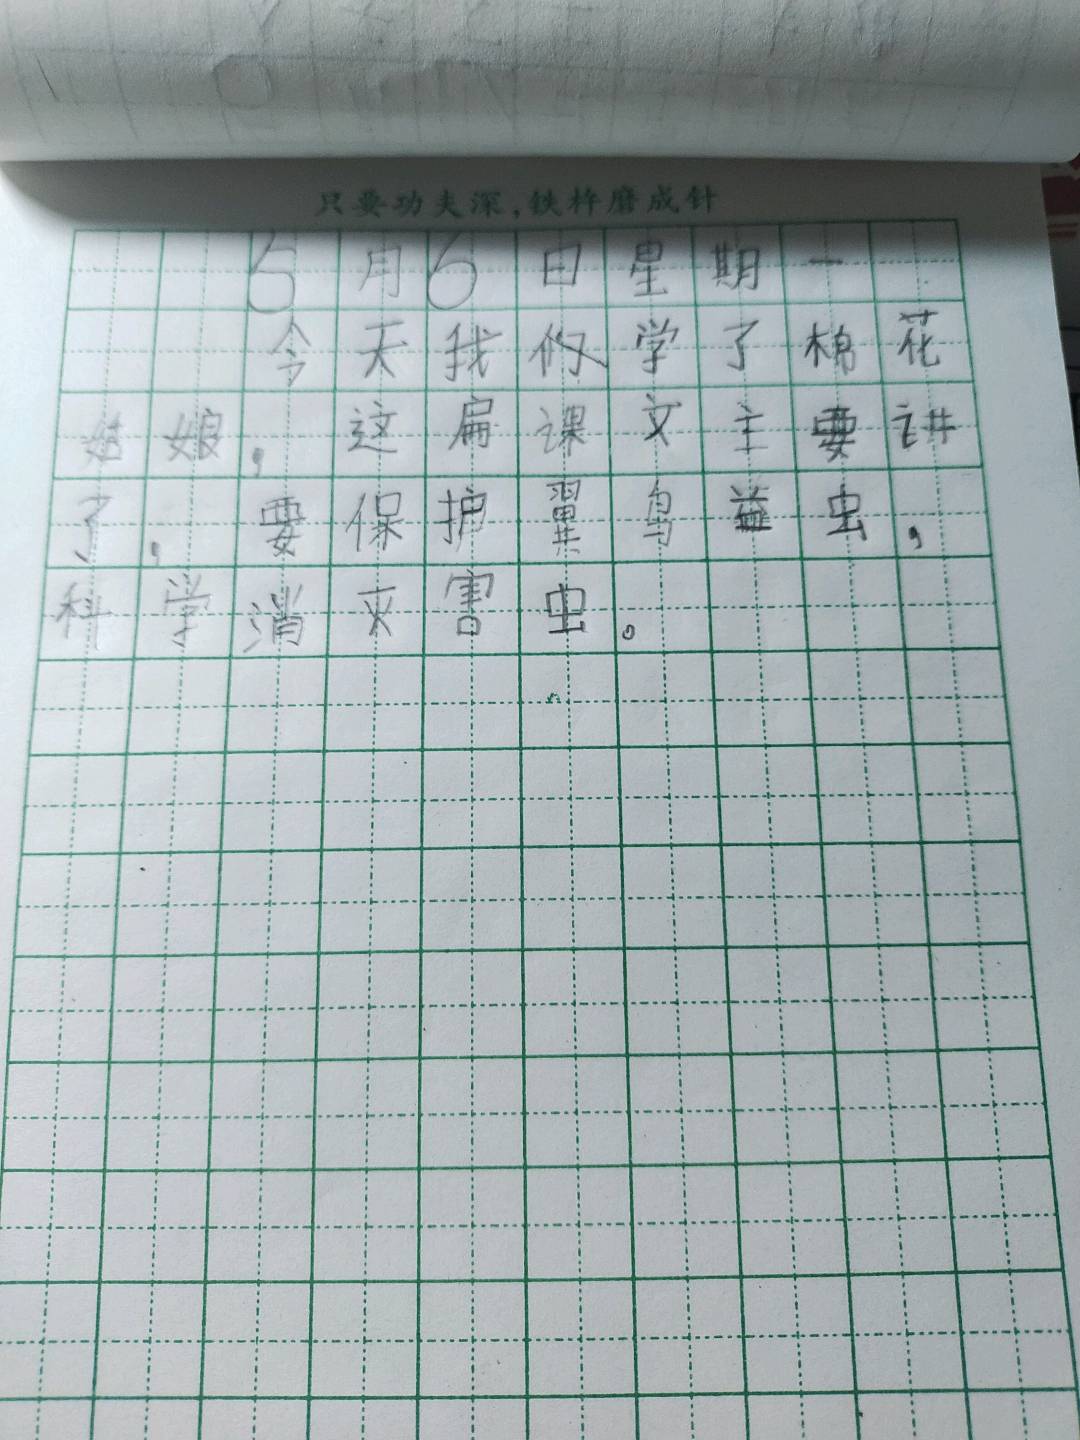 只要功夫深,铁杵磨成针
5月6日星期一
今天我们学了棉花
姑娘,这扁课文主要讲
了,要保护翼鸟益虫,
科学消灭害虫。